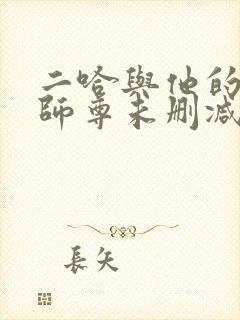 二哈與他的
師尊未刪減
長矢